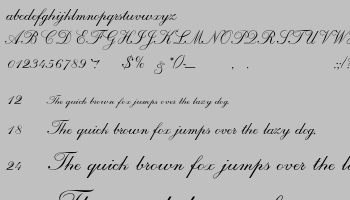 abcdefghijklmnopqrstuvwxyz
ABCDEFGHIJKLMNOPQRSTUVW
0123456789
12 The quick brown fox jumps over the lazy dog.
18 The quick brown fox jumps over the lazy dog.
24 The quick brown fox jumps over the